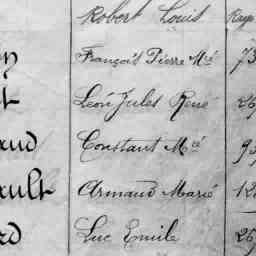 Robert Louis Rap
François Pierre Mie 73
Léon Jules René 26
aud Constant Mcé 93
ault Armand Marie 12
rd Luc Emile 26